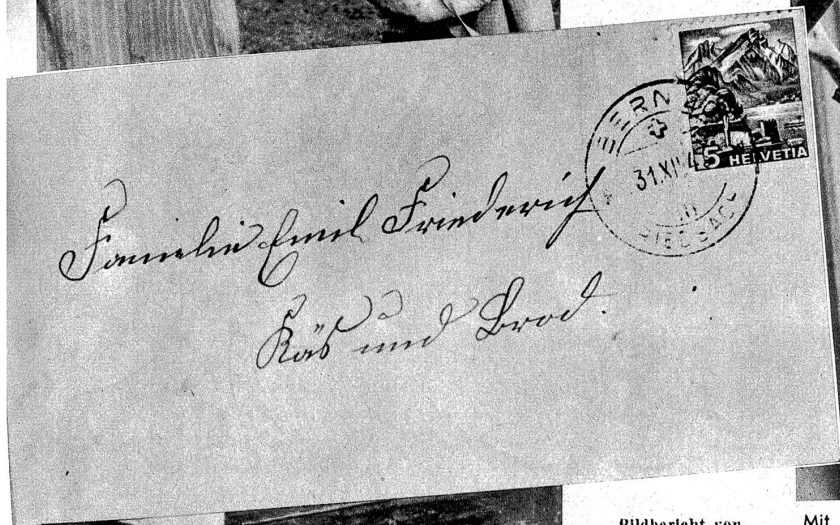 BERN
31.XII.4
5 HELVETIA
Familie Emil Friederich
Käs und Brod.
Bildbericht von
Mit